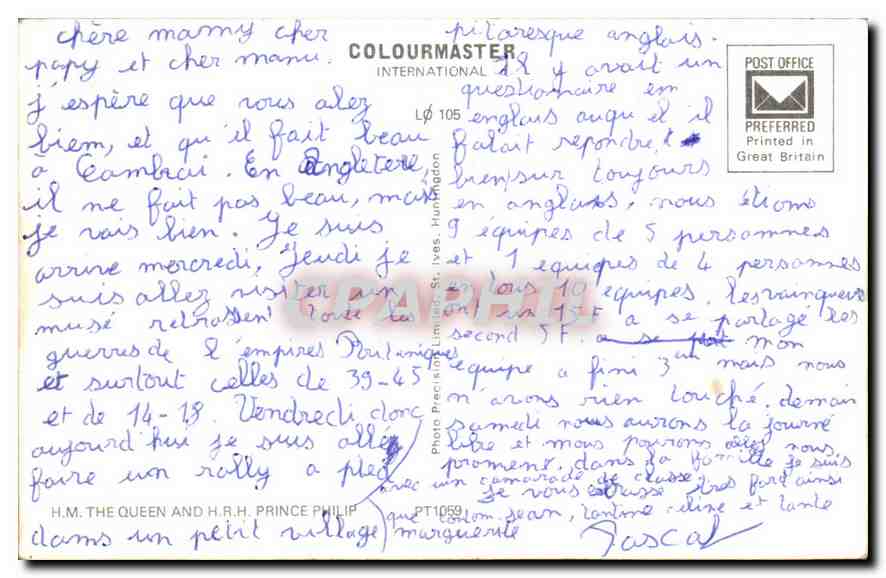 chère mamy cher
papy et cher manu.
j'espère que vous alez
biem, et qu'il fait beau
à Cambrai. En Angletere,
il ne fait pas beau, mais
je vais bien. Je suis
arrive mercredi, Jeudi je
suis allez visiter un
musé toute les
guerres de l'empires
et surtout celles de 39-45
et de 14-18. Vendredi donc
aujourd'hui je suis allé
faire un rally a pied
dams un petit village
pitoresque anglais.
Il y avait un
questionnaire em
englais auquel il
falait repondre,
biensur toujours
en anglais, nous étions
9 équipes de 5 personnes
et 1 equipes de 4 personnes
en tous 10 equipes. les vainqueurs
ont eu 15F a se partage les
second 5F. mon
equipe a fini 3 mais nous
n'avons rien touché. demain
samedi nous aurons la journé
libre et nous pourons nous
promené, dans la famille je suis
avec un camarade de classe,
Je vous très fort ainsi
que tonton jean, tantine celine et tante
marguerite Pascal
COLOURMASTER
INTERNATIONAL
LØ 105
POST OFFICE
PREFERRED
Printed in
Great Britain
Photo Precision Limited, St. Ives, Huntingdon
CPAPHIL
H.M. THE QUEEN AND H.R.H. PRINCE PHILIP
PT1059